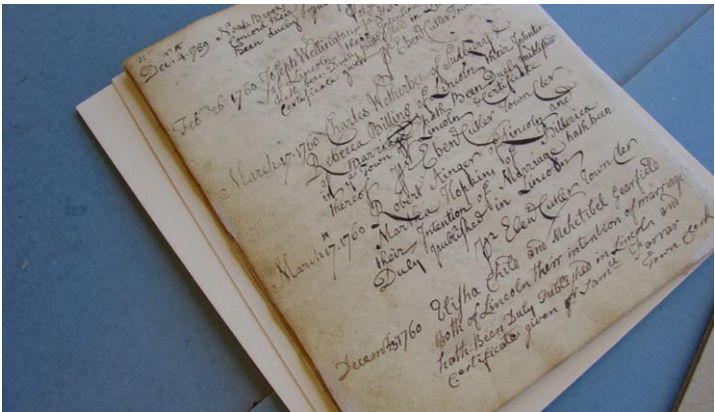 Dec. 4. 1759
Concord their
Been duly
Feb 26: 1760 Joseph Wellington
of Lincoln their Intention
hath been Duly published in
Certificate given Eben Cutler Town
March 17. 1760 Charles Wetherbee of Sudbury &
Rebecca Billing of Lincoln their Intention
of Marriage hath Been Duly published
in ye Town of Lincoln & Certificate
thereof pr Eben Cutler Town Cler
March 17. 1760 Robert Minger of Lincoln and
Martha Hopkins of Billerica
their Intention of Marriage hath been
Duly published in Lincoln
pr Eben Cutler Town Cler
Decem 23 1760 Elisha Child and Mehetibel Gearfield
Both of Lincoln their intention of marriage
hath Been Duly Published in Lincoln and
Certificate given pr Samll Farrar
Town Clerk